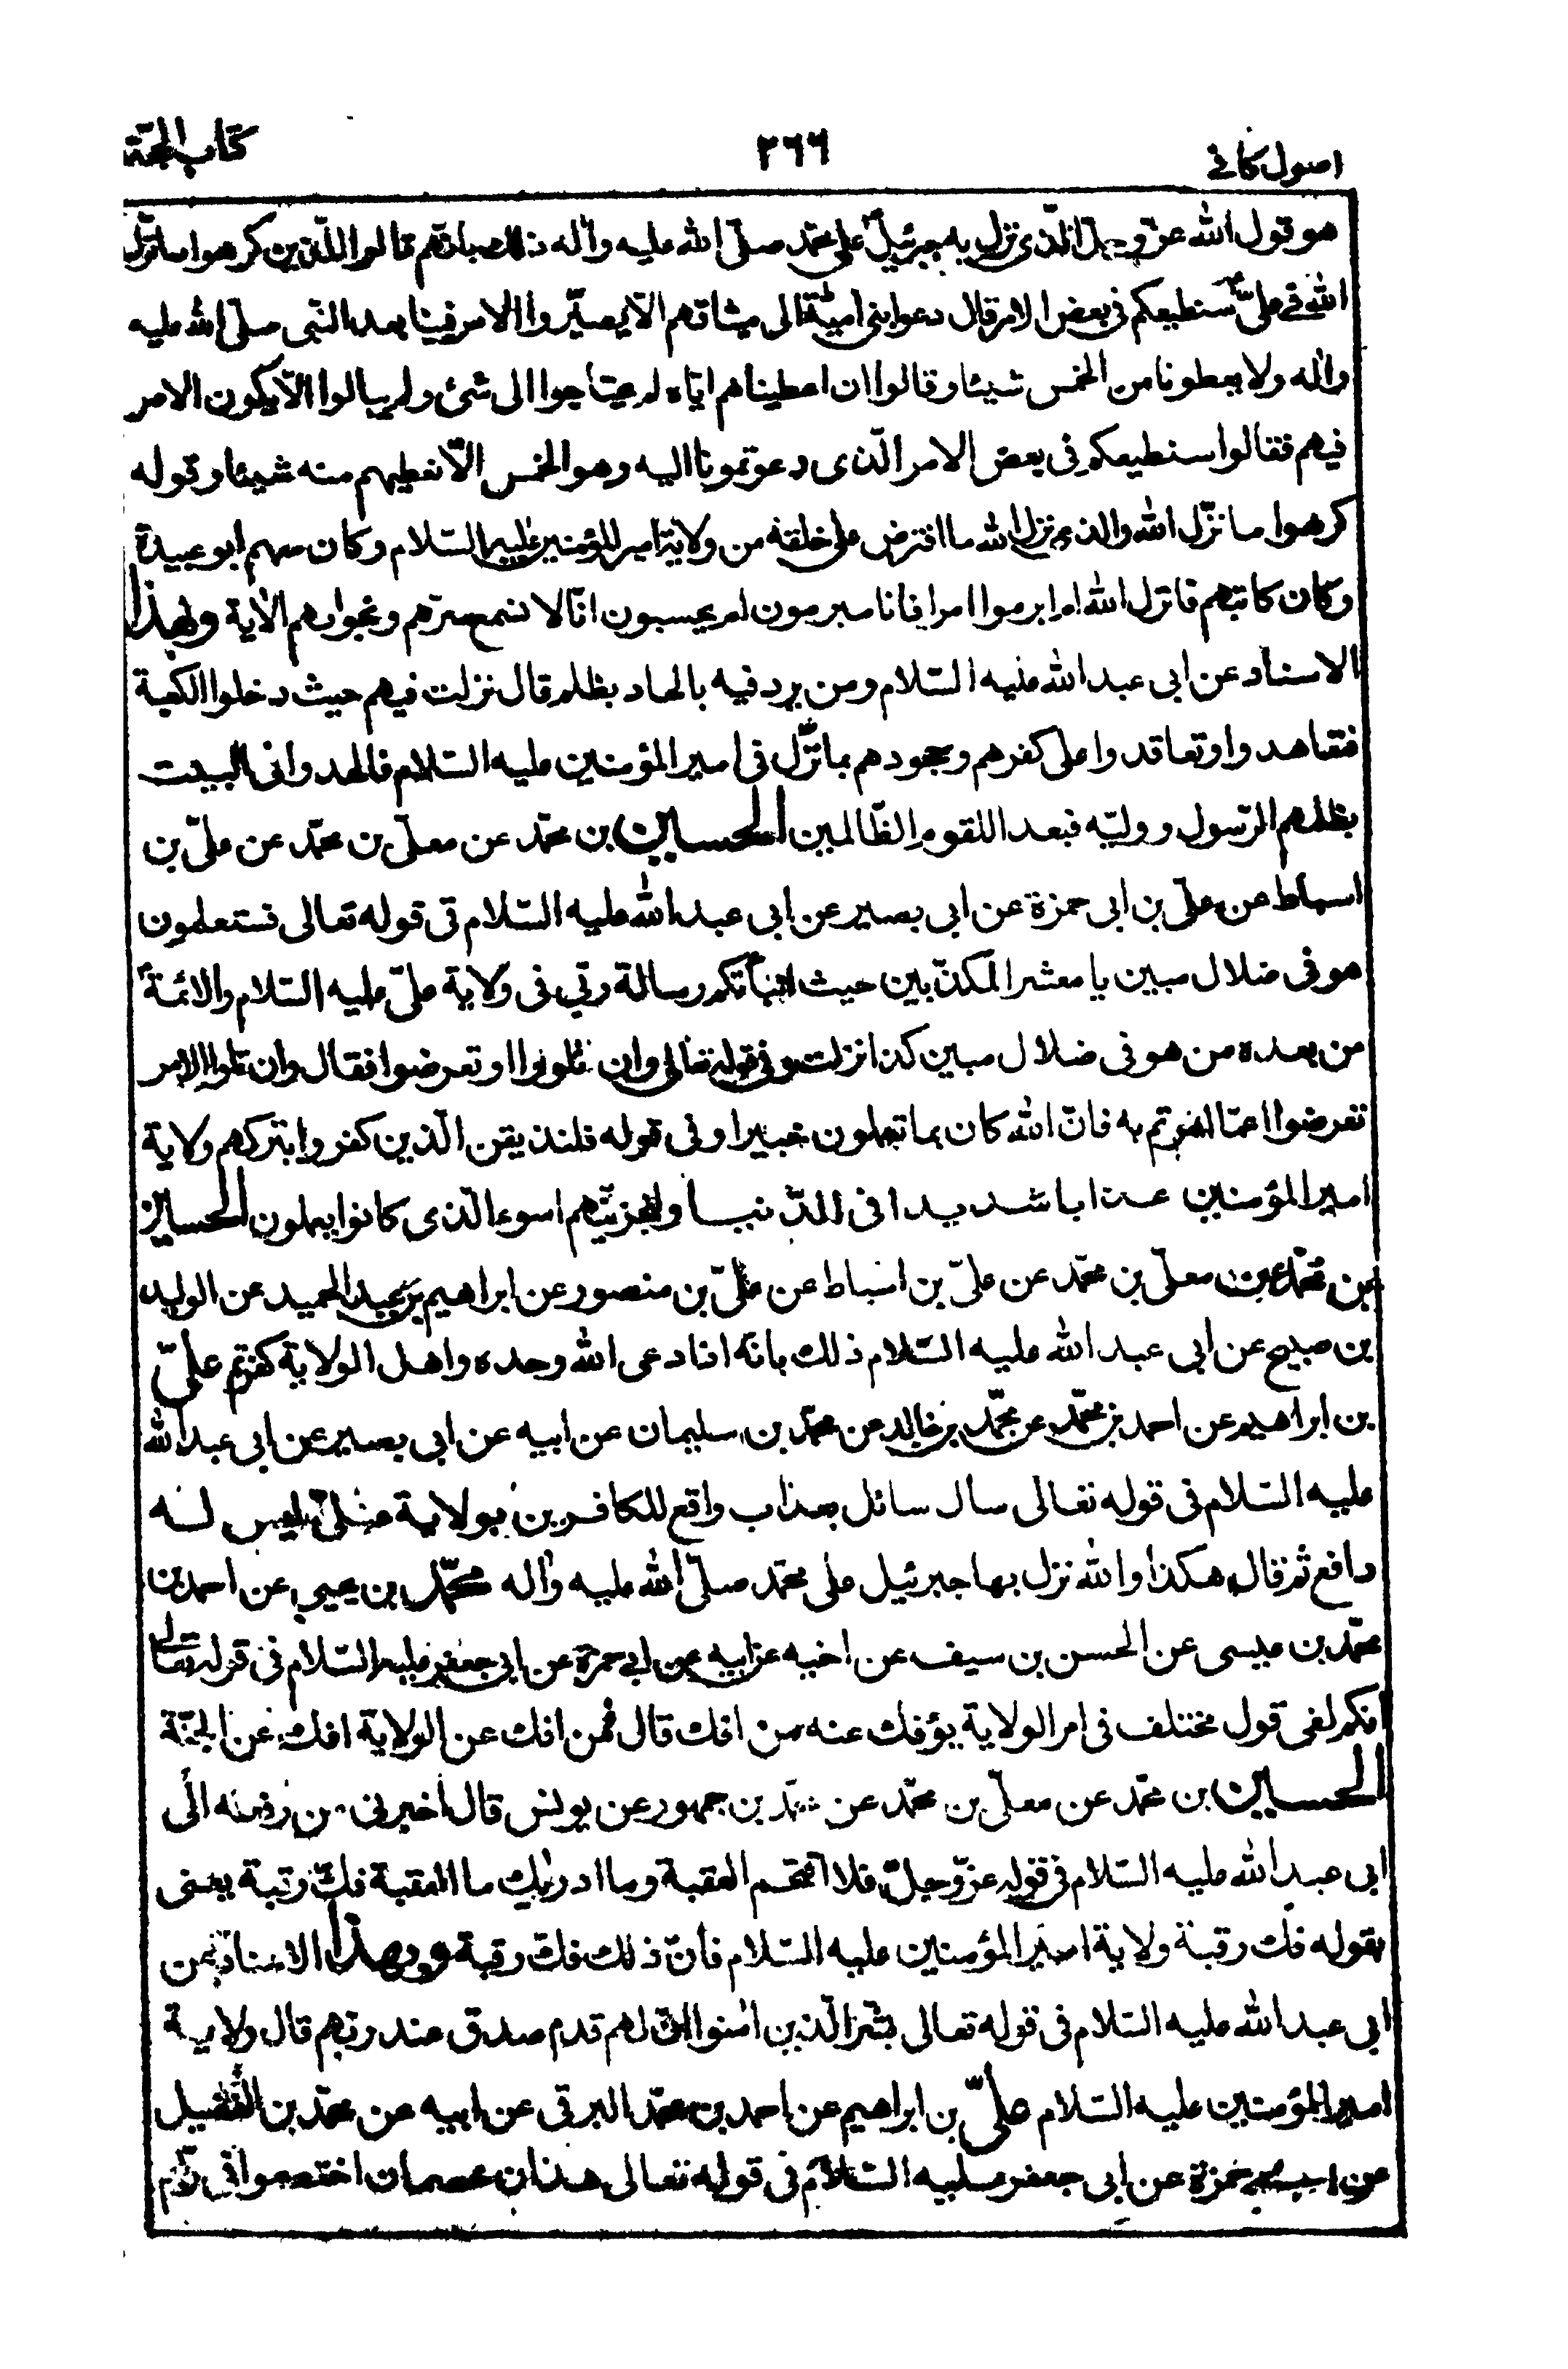 اصول کافے ۲۶۶ کتاب الحجّة
هو قول الله عزّ وجلّ الّذی نزل به جبرئیلؑ علی محمّد صلّی الله علیه واٰله ذلك بانّهم قالوا للّذین کرهوا ما نزّل
الله فی علیّؑ سنطیعکم فی بعض الامر قال دعوا بنی امیّة الی میثاقهم الّا یصیّروا الامر فینا بعد النّبی صلّی الله علیه
واٰله ولا یعطونا من الخمس شیئا وقالوا ان اعطیناهم ایّاه لم یحتاجوا الی شئ ولم یبالوا الّا یکون الامر
فیهم فقالوا سنطیعکم فی بعض الامر الّذی دعوتمونا الیه وهو الخمس الّا نعطیهم منه شیئا وقوله
کرهوا ما نزّل الله والذی نزل الله ما افترض علی خلقه من ولایة امیر المؤمنین علیه السّلام وکان معهم ابو عبیدة
وکان کاتبهم فانزل الله ام ابرموا امرا فانا مبرمون ام یحسبون انّا لا نسمع سرّهم ونجواهم الاٰیة وبهذا
الاسناد عن ابی عبد الله علیه السّلام ومن یرد فیه بالحاد بظلم قال نزلت فیهم حیث دخلوا الکعبة
فتعاهدوا وتعاقدوا علی کفرهم وجحودهم بما نزّل فی امیر المؤمنین علیه السّلام فالحدوا فی البیت
بظلمهم الرّسول وولیّه فبعدا للقوم الظّالمین الحسین بن محمّد عن معلّی بن محمّد عن علیّ بن
اسباط عن علیّ بن ابی حمزة عن ابی بصیر عن ابی عبد الله علیه السّلام فی قوله تعالی فستعلمون
هو فی ضلال مبین یا معشر المکذّبین حیث انبأتکم رسالة ربّی فی ولایة علیّ علیه السّلام والائمّةؑ
من بعده من هو فی ضلال مبین کذا نزلت وفی قوله تعالی وان تلووا او تعرضوا فقال وان تلووا الامر
تعرضوا عمّا امرتم به فانّ الله کان بما تعملون خبیرا وفی قوله فلنذیقن الّذین کفروا بترکهم ولایة
امیر المؤمنین عذابا شدیدا فی الدّنیا ولنجزینّهم اسوء الّذی کانوا یعملون الحسین
بن محمّد عن معلّی بن محمّد عن علیّ بن اسباط عن علیّ بن منصور عن ابراهیم بن عبد الحمید عن الولید
بن صبیح عن ابی عبد الله علیه السّلام ذلك بانّه اذا دعی الله وحده واهل الولایة کفرتم علیّ
بن ابراهیم عن احمد بن محمّد عن محمّد بن خالد عن محمّد بن سلیمان عن ابیه عن ابی بصیر عن ابی عبد الله
علیه السّلام فی قوله تعالی سأل سائل بعذاب واقع للکافرین بولایة علیّ لیس له
دافع ثم قال هکذا والله نزل بها جبرئیل علی محمّد صلّی الله علیه واٰله محمّد بن یحیی عن احمد بن
محمّد بن عیسی عن الحسن بن سیف عن اخیه عن ابیه عن ابی حمزة عن ابی جعفر علیه السّلام فی قوله تعالی
انکم لفی قول مختلف فی امر الولایة یؤفك عنه من افك قال فمن افك عن الولایة افك عن الجنّة
الحسین بن محمّد عن معلّی بن محمّد عن محمّد بن جمهور عن یونس قال اخبرنی من رفعه الی
ابی عبد الله علیه السّلام فی قوله عزّ وجلّ فلا اقتحم العقبة وما ادریٰك ما العقبة فكّ رقبة یعنی
بقوله فك رقبة ولایة امیر المؤمنین علیه السّلام فانّ ذلك فكّ رقبة وبهذا الاسناد عن
ابی عبد الله علیه السّلام فی قوله تعالی بشّر الّذین اٰمنوا انّ لهم قدم صدق عند ربّهم قال ولایة
امیر المؤمنین علیه السّلام علیّ بن ابراهیم عن احمد بن محمّد البرقی عن ابیه عن محمّد بن الفضیل
عن ابی حمزة عن ابی جعفر علیه السّلام فی قوله تعالی هذان خصمان اختصموا فی ربّهم